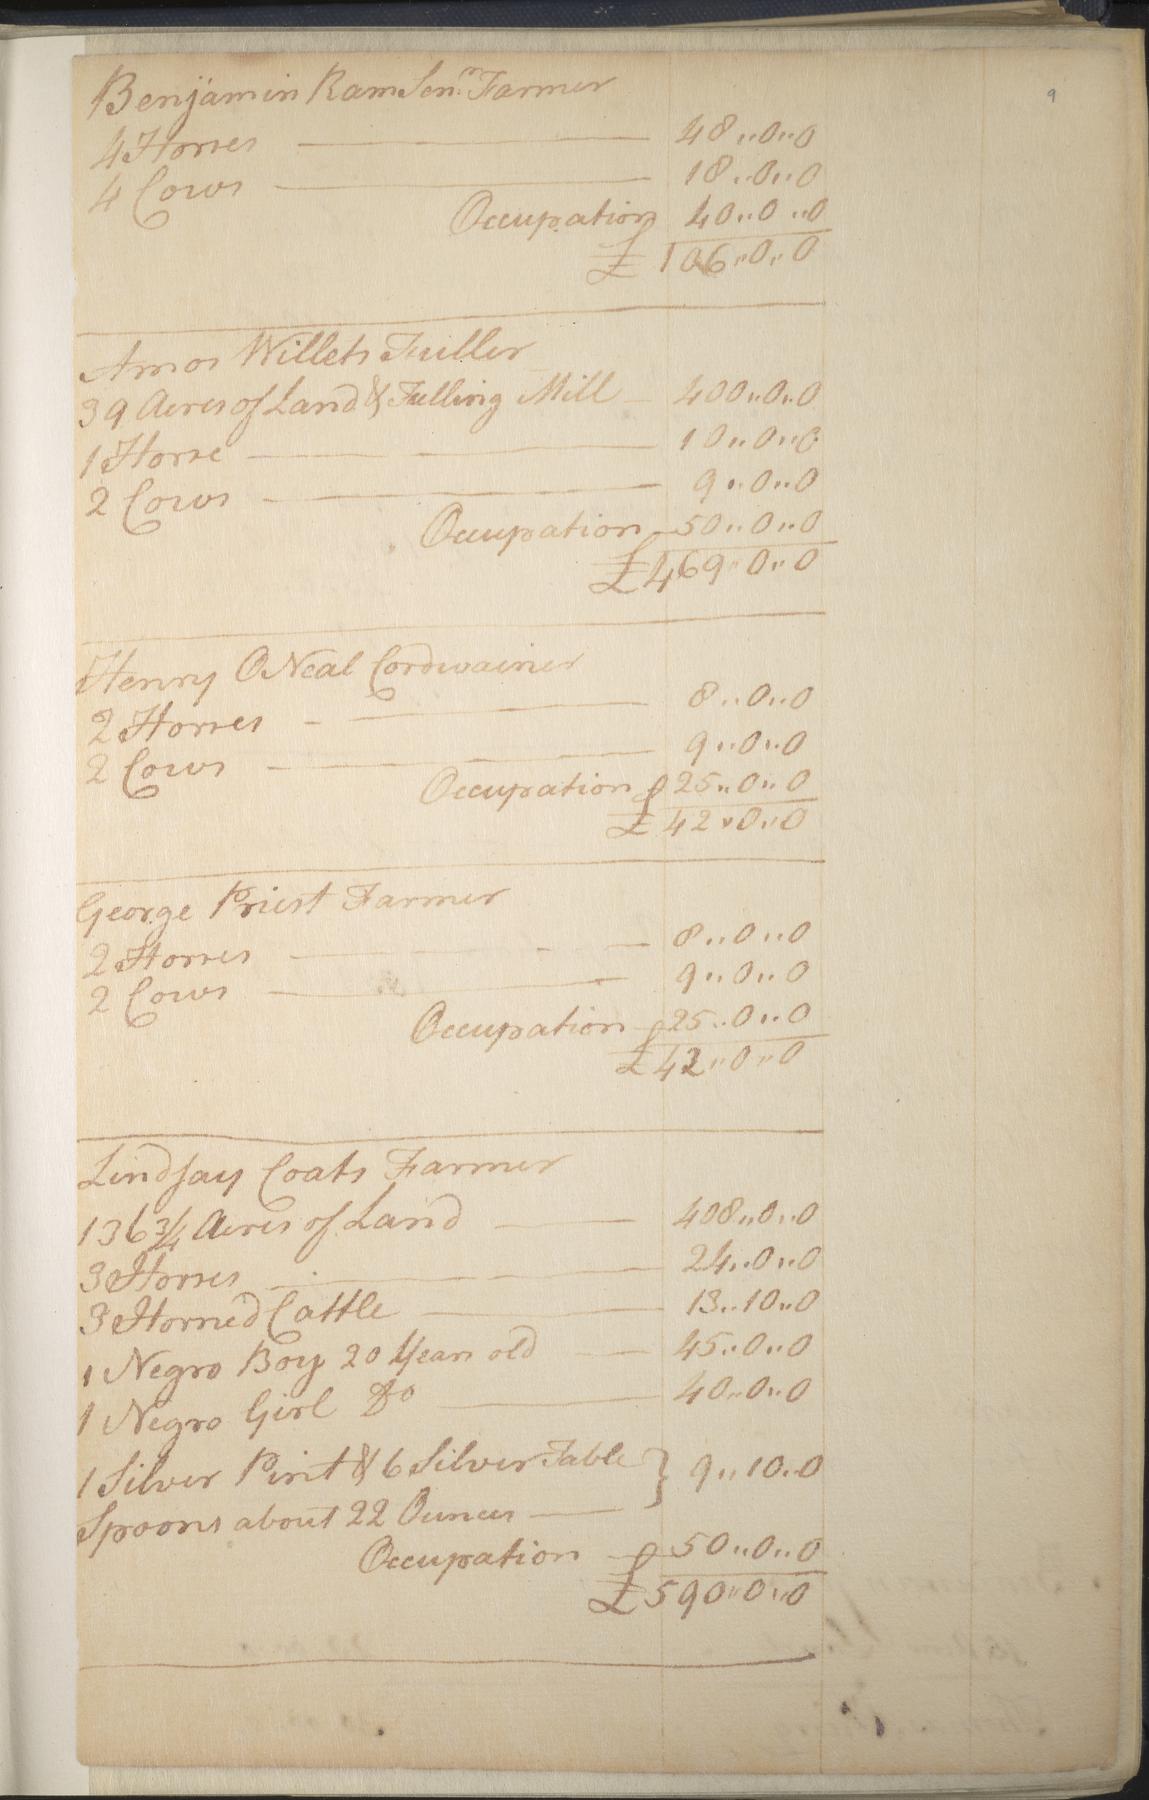 9
Benjamin Ram Senr. Farmer
4 Horses 48,,0,,0
4 Cows 18,,0,,0
Occupation 40,,0,,0
£ 106,,0,,0
Amos Willets Fuller
39 Acres of Land & Fulling Mill 400,,0,,0
1 Horse 10,,0,,0
2 Cows 9,,0,,0
Occupation 50,,0,,0
£ 469,,0,,0
Henry ONeal Cordwainer
2 Horses 8,,0,,0
2 Cows 9,,0,,0
Occupation 25,,0,,0
£ 42,,0,,0
George Priest Farmer
2 Horses 8,,0,,0
2 Cows 9,,0,,0
Occupation 25,,0,,0
£ 42,,0,,0
Lindsay Coats Farmer
136 3/4 Acres of Land 408,,0,,0
3 Horses 24,,0,,0
3 Horned Cattle 13,,10,,0
1 Negro Boy 20 Years old 45,,0,,0
1 Negro Girl Do 40,,0,,0
1 Silver Pint & 6 Silver Table } 9,,10,,0
Spoons about 22 Ounces
Occupation 50,,0,,0
£ 590,,0,,0